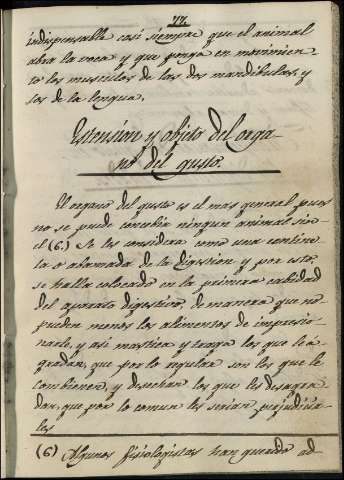 77.
indispensable casi siempre que el animal
abra la voca y que ponga en movimien
to los musculos de las dos mandibulas, y
los de la lengua.
Estension y objeto del orga-
no del gusto.
El organo del gusto es el mas general pues
no se puede concebir ningun animal sin
el (6.) Se los considera como una centine
la o abanzada de la digestion y por esto,
se halla colocado en la primera cabidad
del aparato digestivo, de manera que no
pueden menos los alimentos de impresio-
narlo, y asi mastica y traga los que le a-
gradan, que por lo regular son los que le
combienen, y desechan los que les desagra
dan, que por lo comun les serian perjudicia-
les
(6) Algunos fisiologistas han querido ad